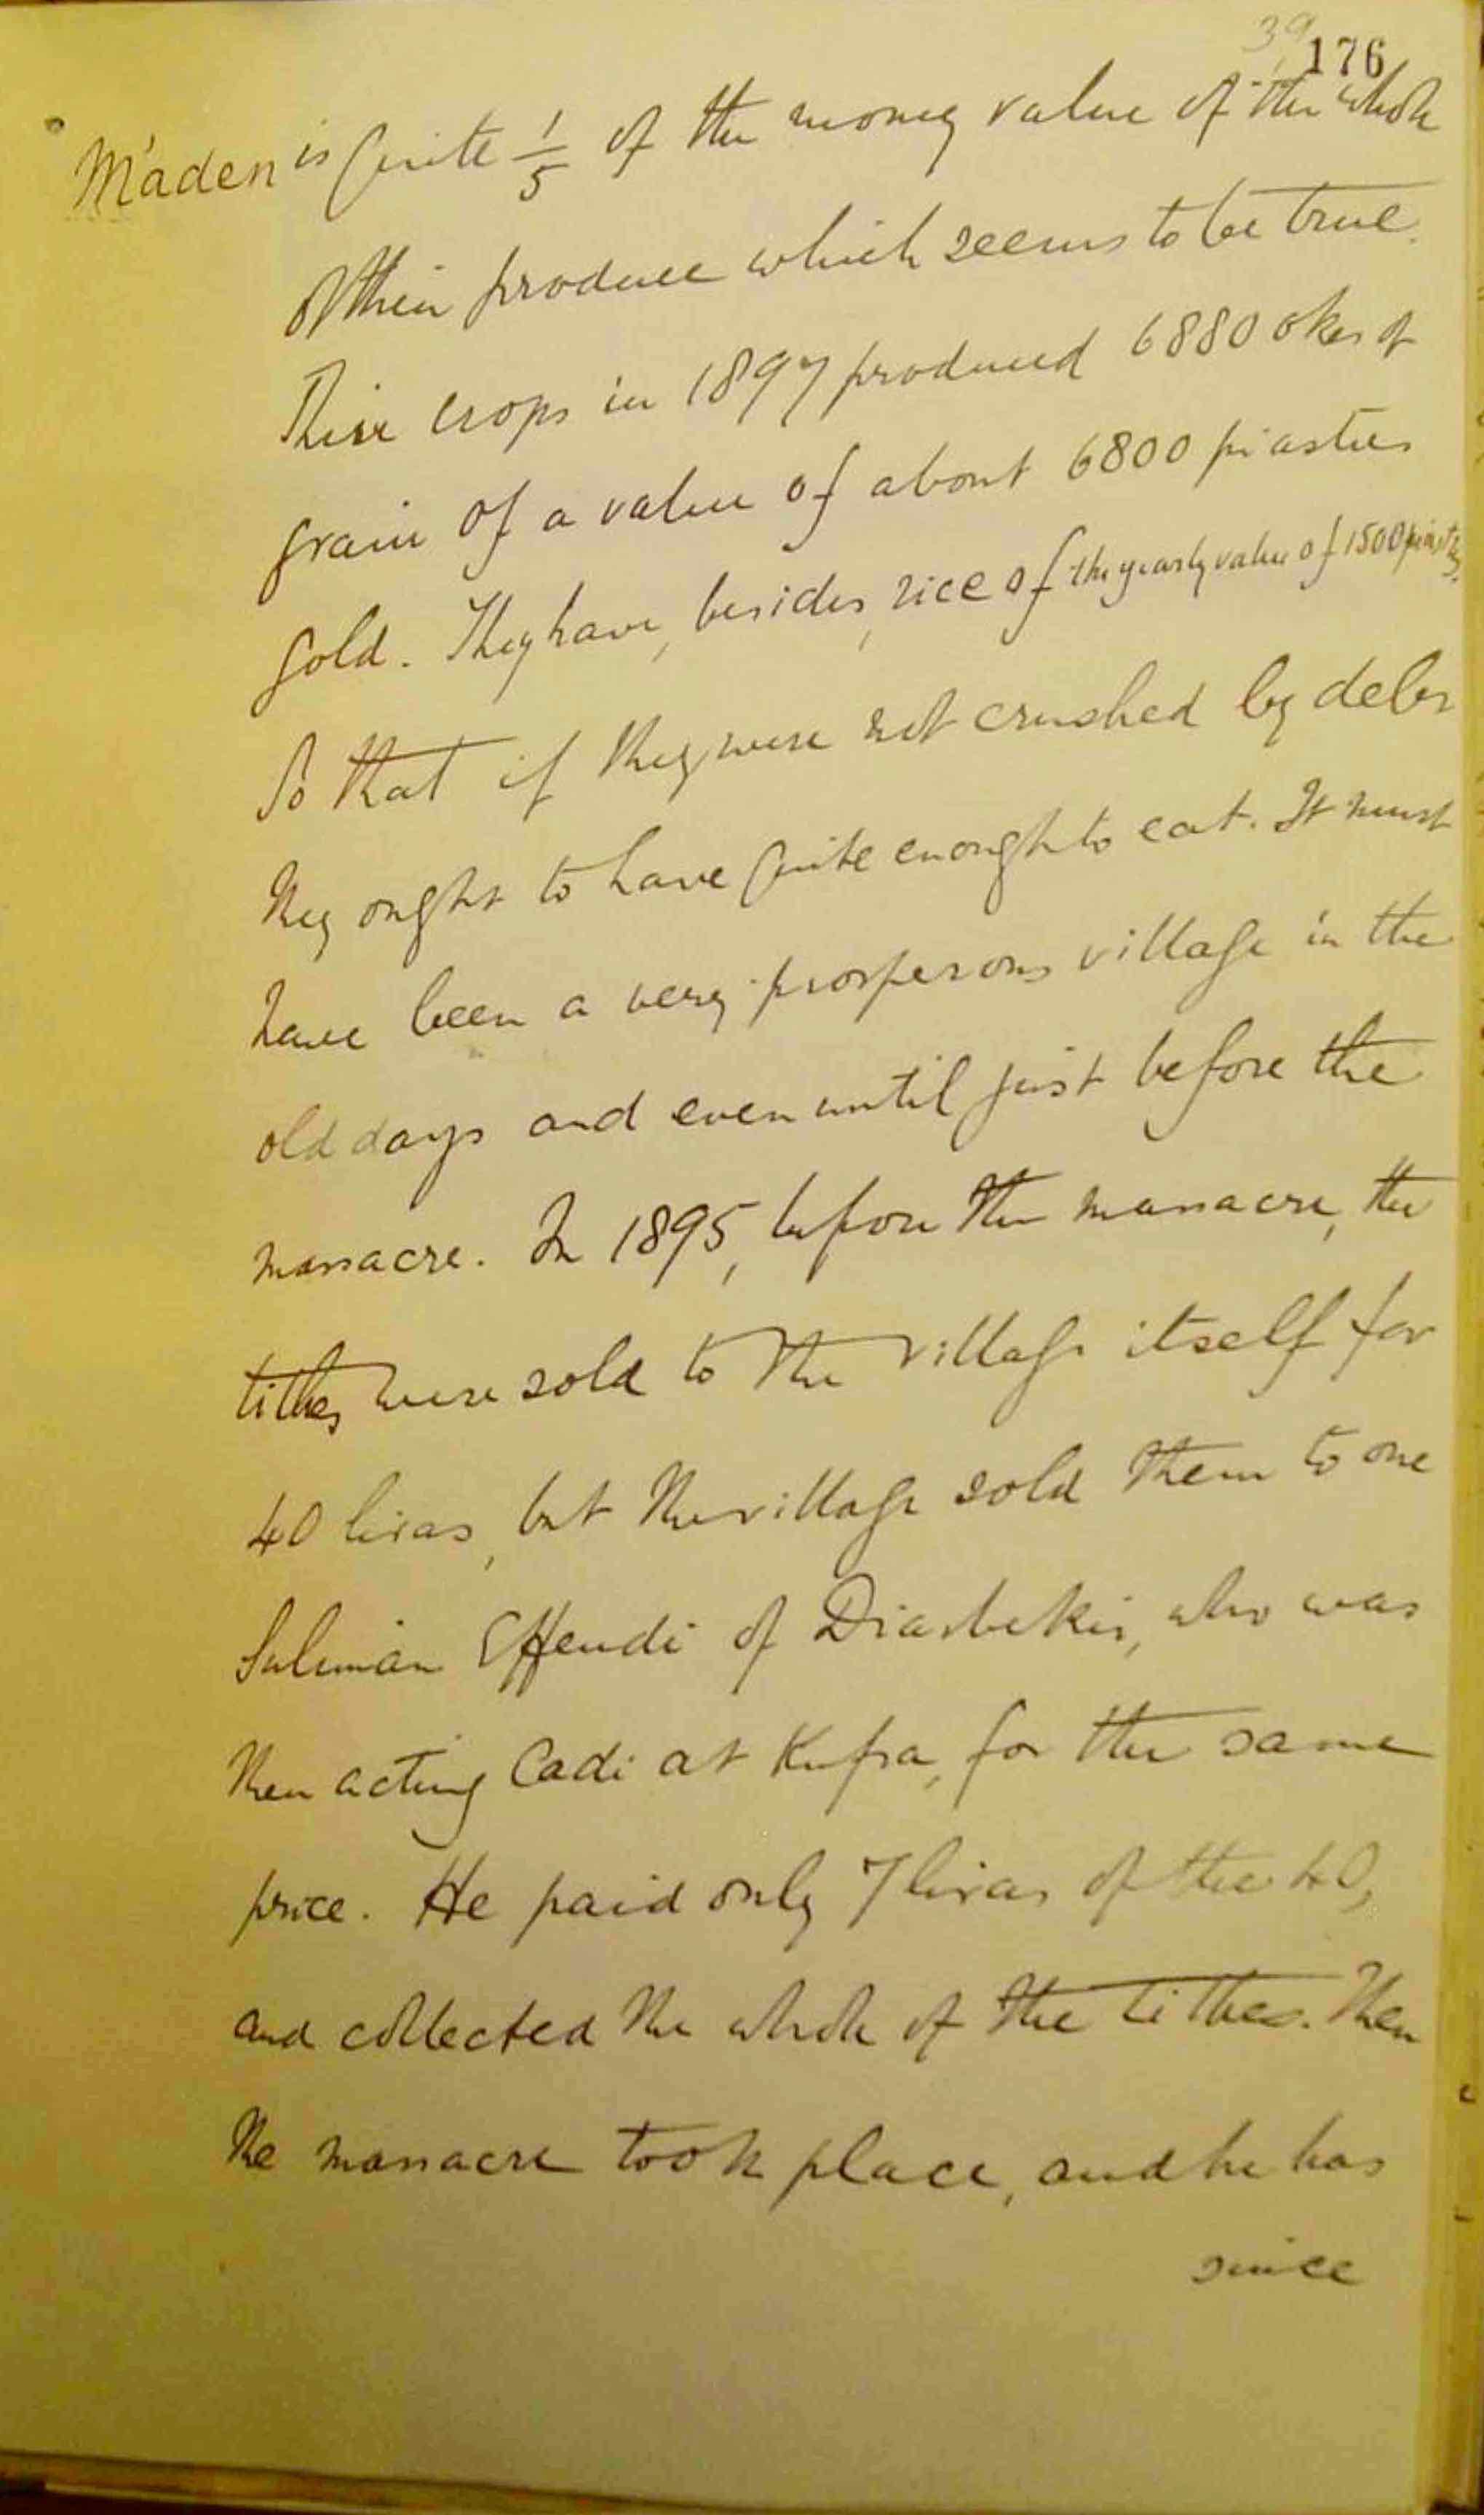 39
176
Máden is quite 1/5 of the money value of the whole
of their produce which seems to be true.
Their crops in 1897 produced 6880 okes of
grain of a value of about 6800 piastres
gold. They have, besides, rice of the yearly value of 1500 piastres.
So that if they were not crushed by debts
they ought to have quite enough to eat. It must
have been a very prosperous village in the
old days and even until just before the
massacre. In 1895, before the massacre, the
tithes were sold to the village itself for
40 liras, but the village sold them to one
Suleiman Effendi of Diarbekir, who was
then acting Cadi at Kufra, for the same
price. He paid only 7 liras of the 40,
and collected the whole of the tithes. Then
the massacre took place, and he has
since